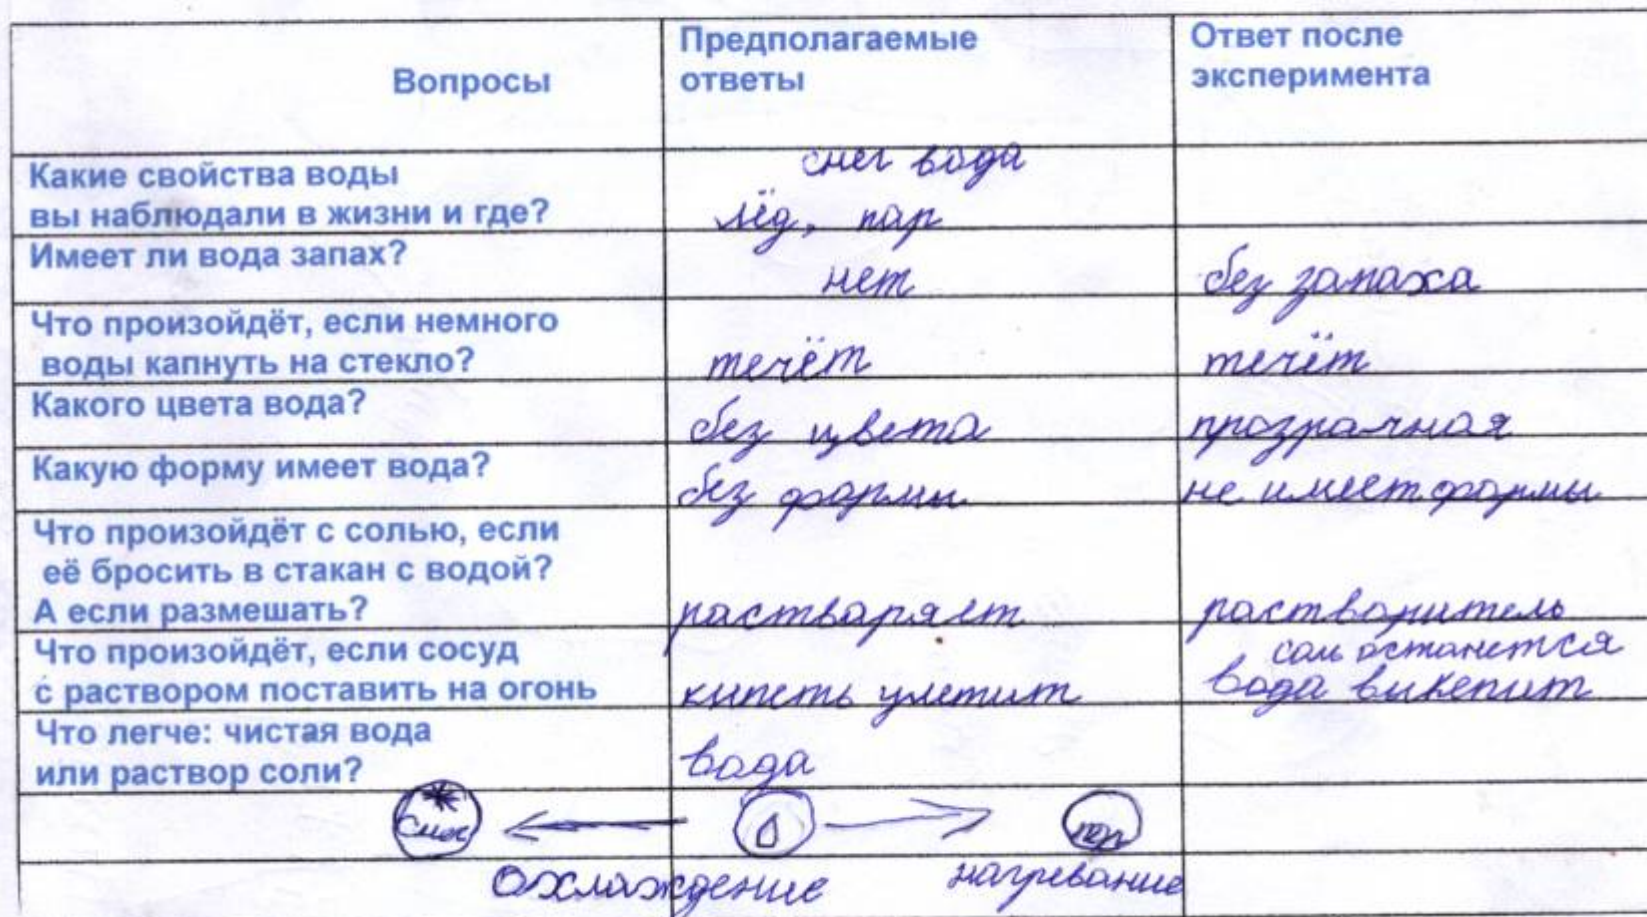 Вопросы
Предполагаемые
ответы
Ответ после
эксперимента
Какие свойства воды
вы наблюдали в жизни и где?
снег вода
лёд, пар
Имеет ли вода запах?
нет
без запаха
Что произойдёт, если немного
воды капнуть на стекло?
течёт
течёт
Какого цвета вода?
без цвета
прозрачная
Какую форму имеет вода?
без формы
не имеет формы
Что произойдёт с солью, если
её бросить в стакан с водой?
А если размешать?
растваряет
растворитель
Что произойдёт, если сосуд
с раствором поставить на огонь
кипеть улетит
соль останется
вода выкепит
Что легче: чистая вода
или раствор соли?
вода
пар
охлаждение
нагревание